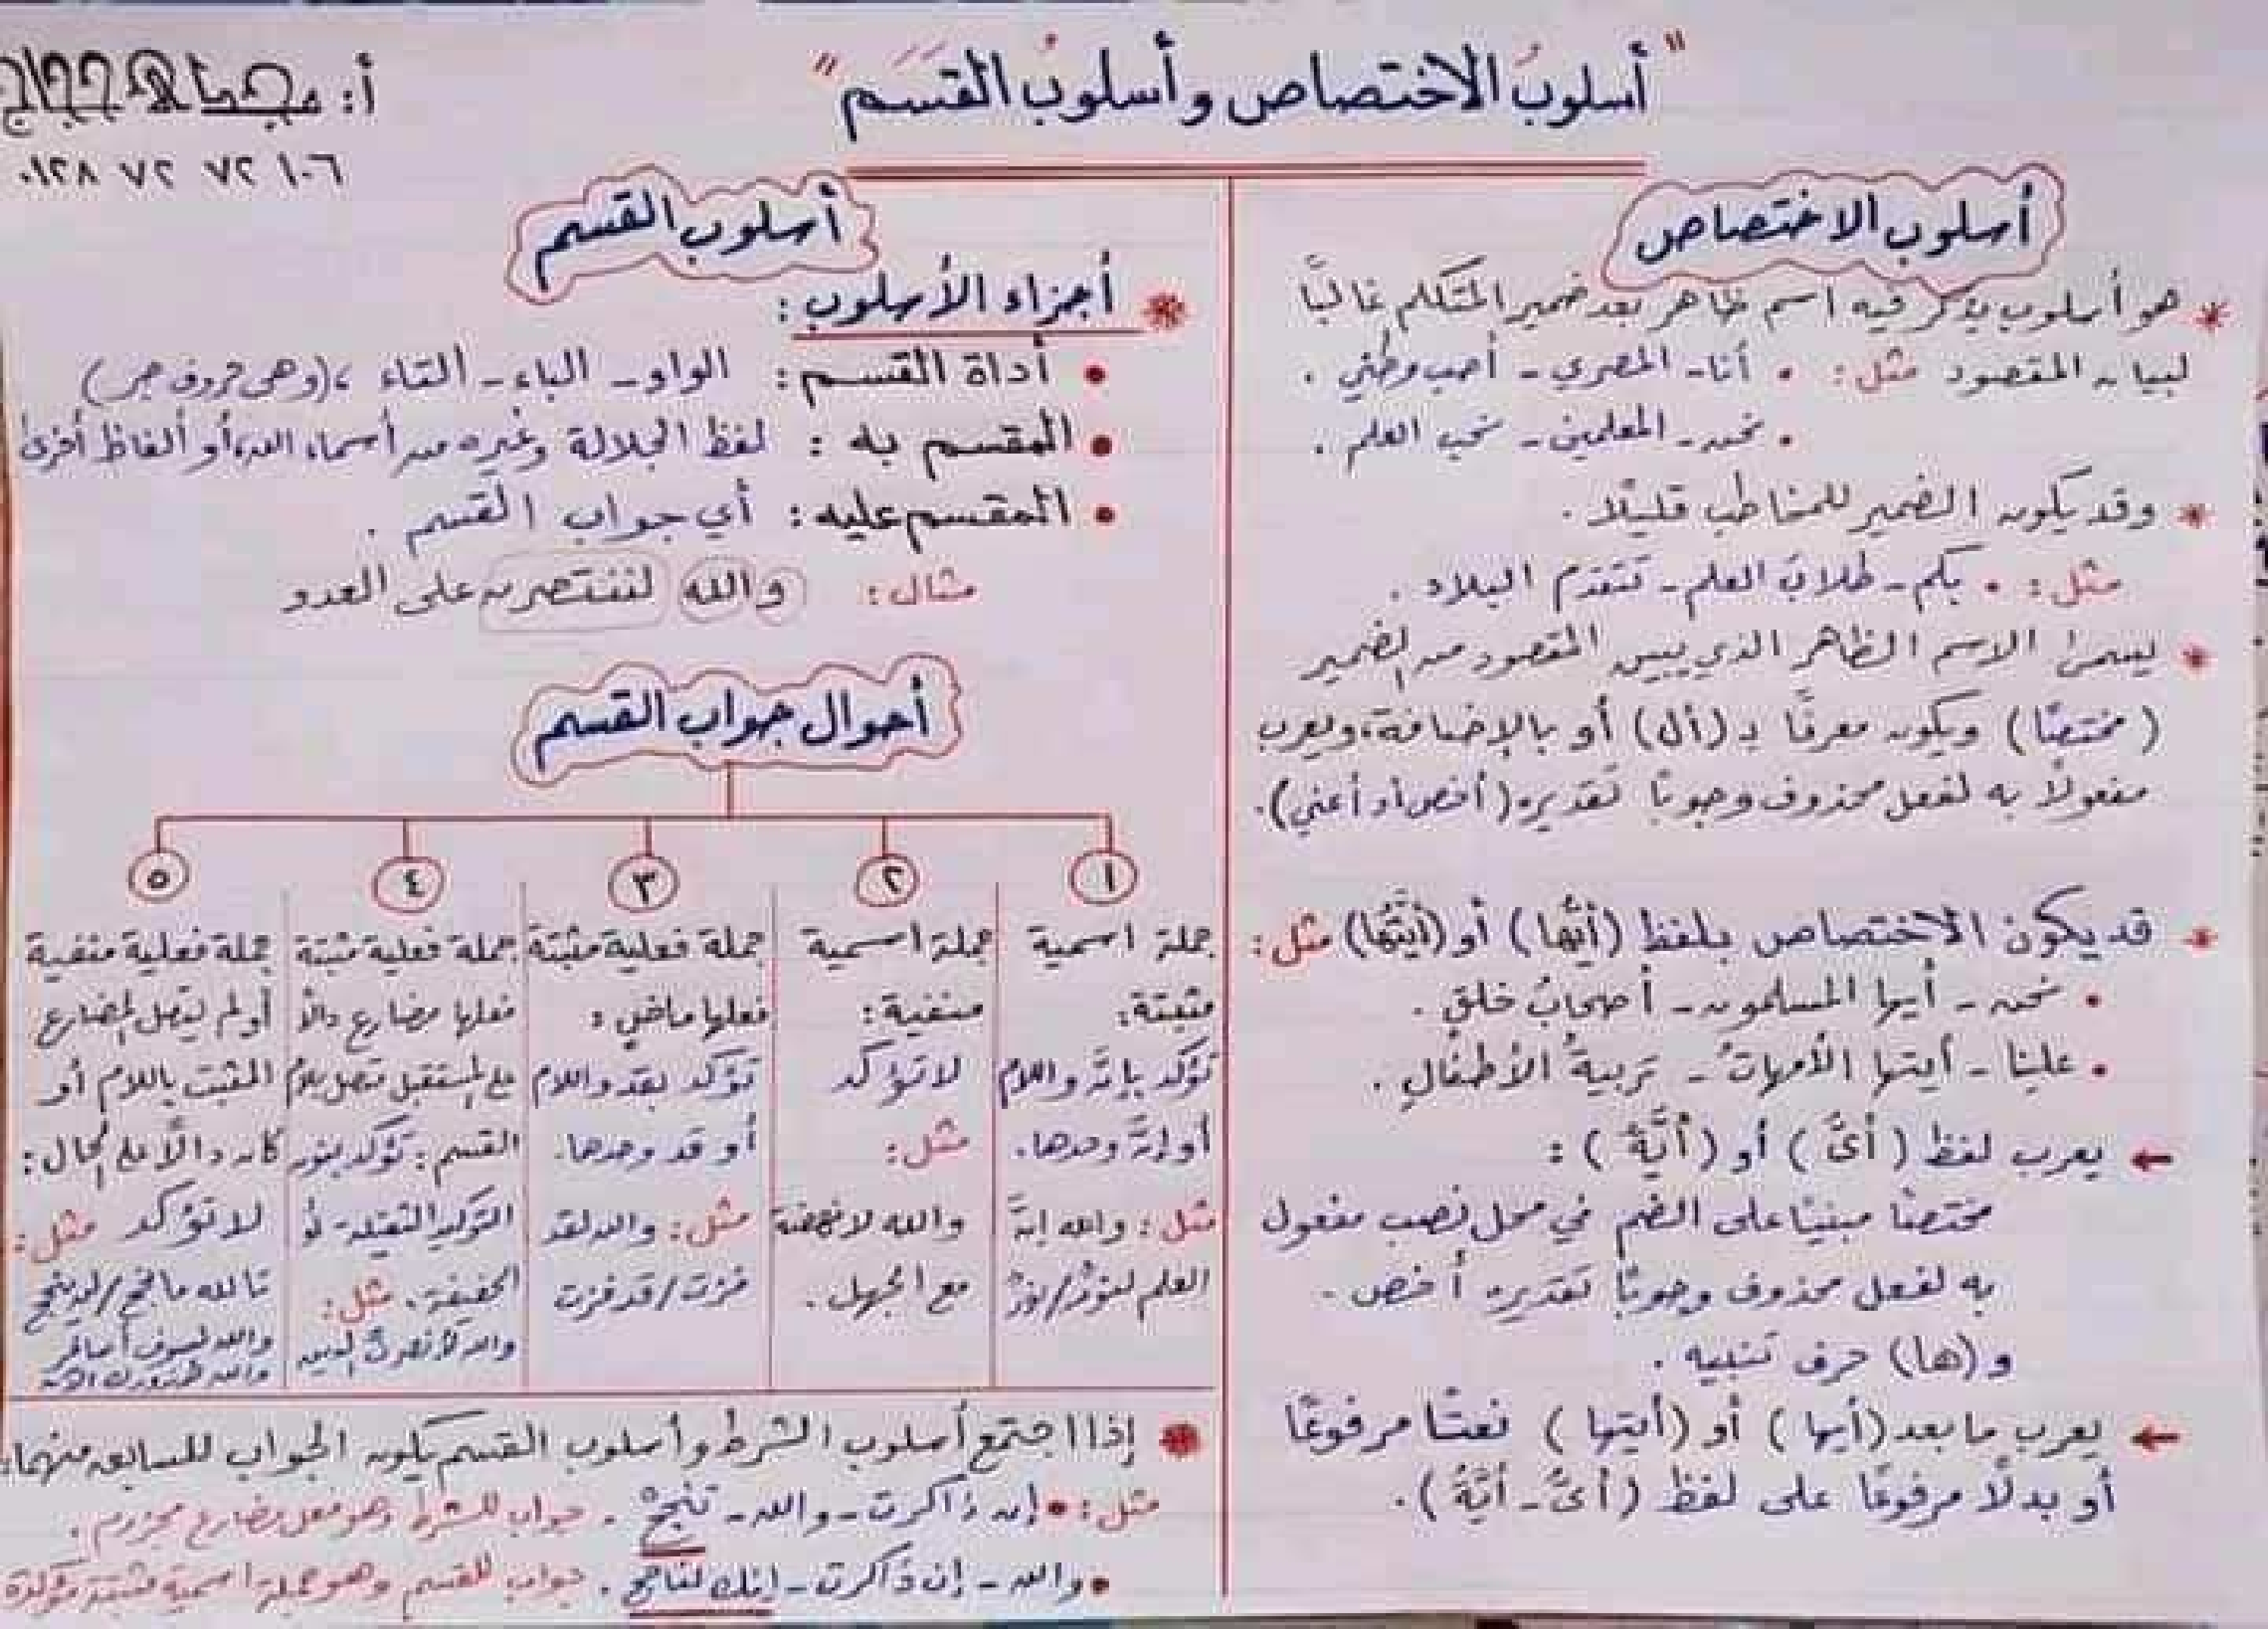 "أسلوبُ الاختصاص وأسلوبُ القَسَم"
أ:
٠١٢٨ ٧٢ ٧٢ ١٠٦
أسلوب الاختصاص
* هو أسلوب يذكر فيه اسم ظاهر بعد ضمير المتكلم غالبًا
لبيان المقصود مثل: • أنا - المصري - أحب وطني .
• نحن - المعلمين - نحب العلم .
* وقد يكون الضمير للمخاطب قليلًا .
مثل: • بكم - طلابَ العلم - تتقدم البلاد .
* يسمى الاسم الظاهر الذي يبين المقصود من الضمير
(مختصًا) ويكون معرفًا بـ (أل) أو بالإضافة، ويعرب
مفعولًا به لفعل محذوف وجوبًا تقديره (أخص أو أعني).
* قد يكون الاختصاص بلفظ (أيُّها) أو (أيَّتُها) مثل:
• نحن - أيها المسلمون - أصحابُ خلق .
• علينا - أيتها الأمهاتُ - تربيةُ الأطفالِ .
← يعرب لفظ (أىُّ) أو (أيَّةُ) :
مختصًا مبنيًا على الضم في محل نصب مفعول
به لفعل محذوف وجوبًا تقديره أخص .
و (ها) حرف تنبيه .
← يعرب ما بعد (أيها) أو (أيتها) نعتًا مرفوعًا
أو بدلًا مرفوعًا على لفظ (أىُّ - أيَّةُ).
أسلوب القسم
* أجزاء الأسلوب :
• أداة القسم : الواو - الباء - التاء ، (وهى حروف جر)
• المقسم به : لفظ الجلالة وغيره من أسماء الله، أو ألفاظ أخرى
• المقسم عليه : أي جواب القسم .
مثال: والله لننتصرن على العدو
أحوال جواب القسم
١
جملة اسمية
مثبتة:
تؤكد بإنَّ واللام
أو إنَّ وحدها.
مثل: والله إنَّ
العلم لنورٌ/نورٌ
٢
جملة اسمية
منفية:
لا تؤكد
مثل:
والله لا نهضة
مع الجهل .
٣
جملة فعلية مثبتة
فعلها ماضي :
تؤكد بقد واللام
أو قد وحدها.
مثل: والله لقد
فزت/قد فزت
٤
جملة فعلية مثبتة
فعلها مضارع دالًا
على المستقبل متصل بلام
القسم: تؤكد بنون
التوكيد الثقيلة أو
الخفيفة. مثل:
والله لأنصرنَّ الدين
٥
جملة فعلية منفية
أو لم يتصل المضارع
المثبت باللام أو
كان دالًا على الحال:
لا تؤكد مثل:
تالله ما نجح/لن ينجح
والله لسوف أسافر
والله الآن
* إذا اجتمع أسلوب الشرط وأسلوب القسم يكون الجواب للسابق منهما،
مثل: • إن ذاكرت - والله - تنجحْ . جواب للشرط وهو فعل مضارع مجزوم .
• والله - إن ذاكرت - إنك لناجح . جواب للقسم وهو جملة اسمية مثبتة مؤكدة